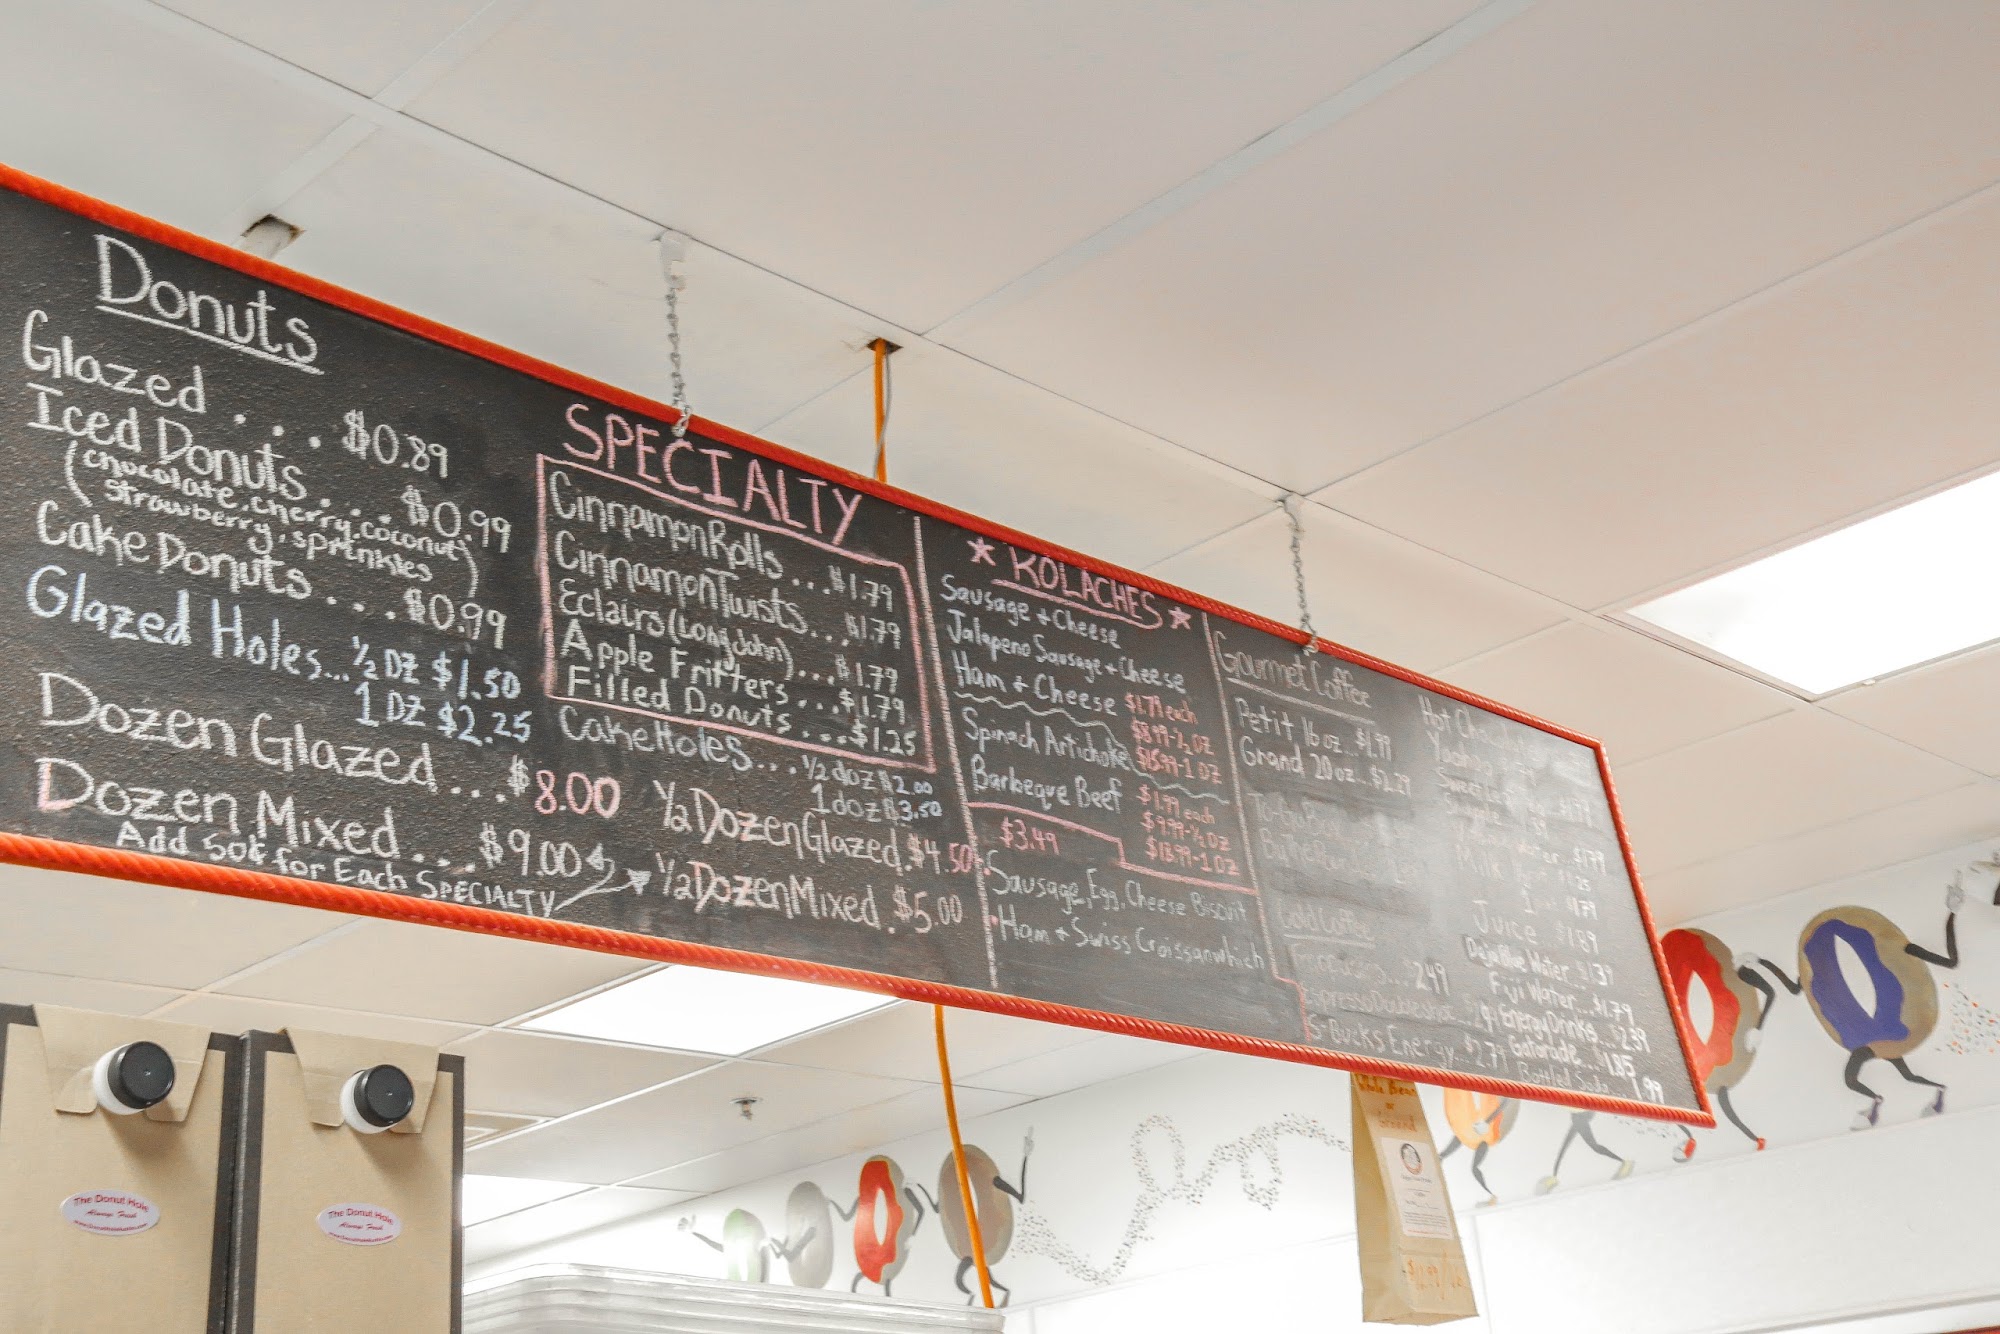 Donuts
Glazed . . . . $0.89
Iced Donuts . . . . $0.99
(chocolate, cherry, coconut,
strawberry, sprinkles)
Cake Donuts . . . . $0.99
Glazed Holes... ½ DZ $1.50
1 DZ $2.25
Dozen Glazed . . . $8.00
Dozen Mixed . . . $9.00
Add 50¢ for Each SPECIALTY
SPECIALTY
Cinnamon Rolls . . . $1.79
Cinnamon Twists . . . $1.79
Eclairs (Long John) . . . $1.79
Apple Fritters . . . $1.79
Filled Donuts . . . $1.25
Cake Holes . . . ½ doz $2.00
1 doz $3.50
½ Dozen Glazed . $4.50
½ Dozen Mixed . $5.00
KOLACHES
Sausage + Cheese
Jalapeno Sausage + Cheese
Ham + Cheese $1.79 each
$8.99-½ DZ
Spinach Artichoke $15.99-1 DZ
Barbeque Beef $1.99 each
$9.99-½ DZ
1 DZ
$3.49
Sausage, Egg, Cheese Biscuit
Ham + Swiss Croissanwhich
Gourmet Coffee
Petit 16 oz... $1.99
Grand 20 oz... $2.29
To-Go Box
Cold Coffee
$2.49
Espresso Doubleshot
S-Bucks Energy... $2.79
Hot Chocolate
Yoohoo
Milk
Juice $1.89
Deja Blue Water $1.37
Fiji Water... $1.79
Energy Drinks... $2.39
Gatorade... $1.85
Bottled Soda... 1.99
The Donut Hole
Always Fresh
The Donut Hole
Always Fresh
or
Ground